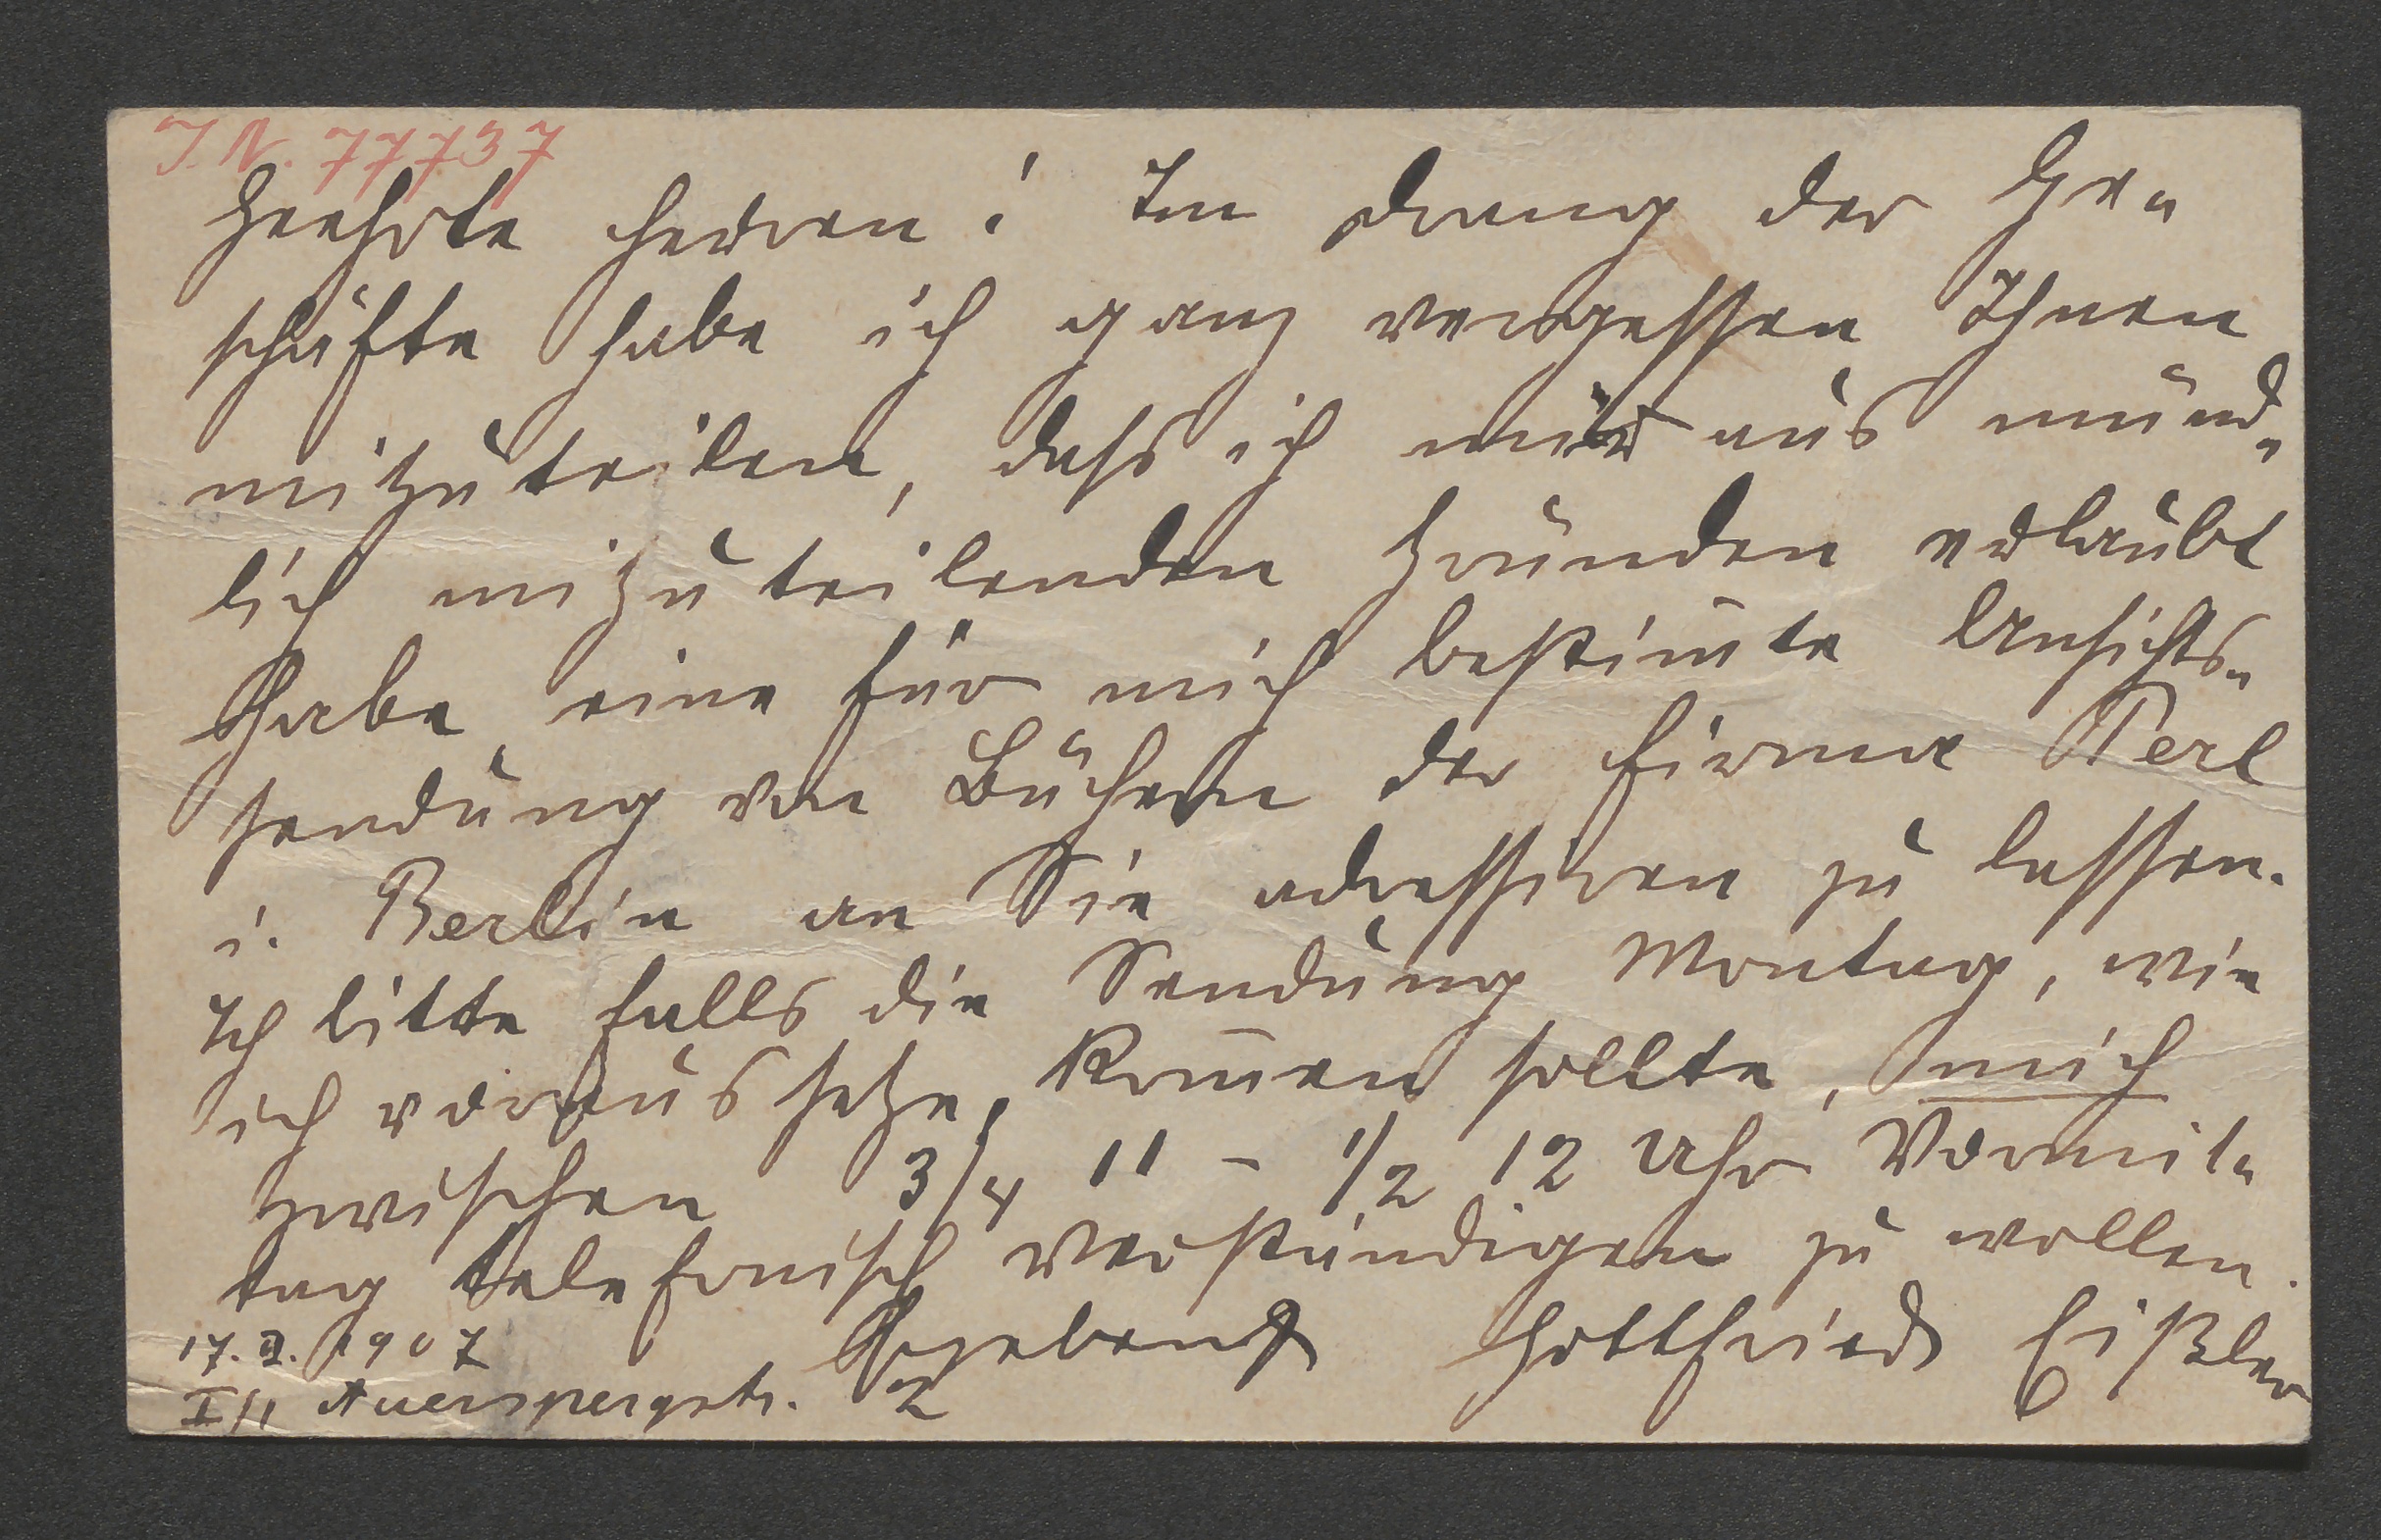 I. N. 77737
Geehrte Herren! Im Drang der Ge-
schäfte habe ich ganz vergessen Ihnen
mitzuteilen, dass ich mir aus münd-
lich mitzuteilenden Gründen erlaubt
habe, eine für mich bestim̄te Ansichts-
sendung von Büchern der Firma Perl
i. Berlin an Sie adressiren zu lassen.
Ich bitte falls die Sendung Montag, wie
ich voraussetze, kom̄en sollte, mich
zwischen 3/4 11 – 1/2 12 Uhr Vormit-
tag telefonisch verständigen zu wollen.
17. 1907 Ergebenst Gottfried Eißler
I/1 Auerspergstr. 2